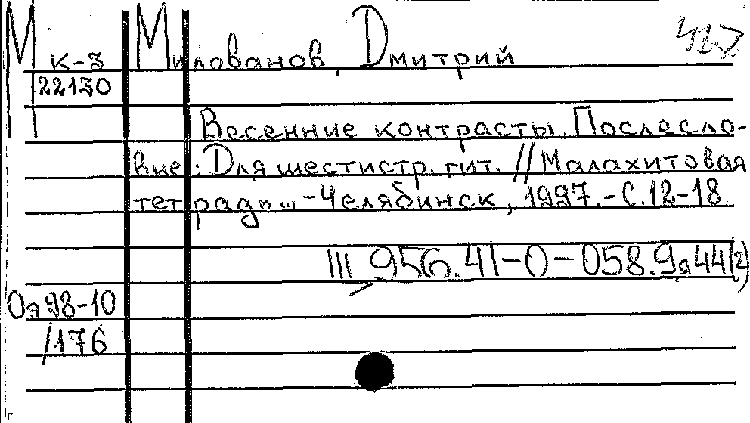 М к-3 Милованов, Дмитрий
22130
Весенние контрасты. Послесло-
вие: Для шестистр. гит. // Малахитовая
тетрадь... - Челябинск, 1997. - С. 12-18
III 956.41-0-058.9я44(2)
Оя98-10
/176